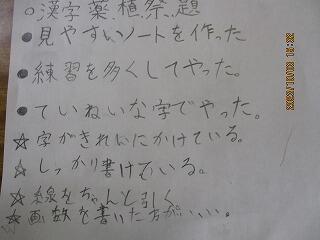 ○漢字薬、植、祭、題
●見やすいノートを作った
●練習を多くしてやった。
●ていねいな字でやった。
☆字がきれいにかけている。
☆しっかり書けている。
☆線をちゃんと引く
☆画数を書いた方がいい。